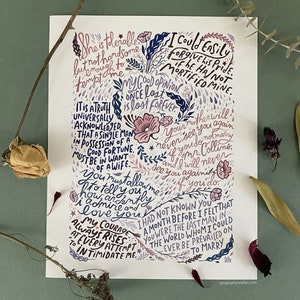 She is tolerable
but not handsome
enough to
tempt me
I could Easily
forgive his pride,
if he had not
mortified mine.
My Good opinion
once lost
is lost forever
IT IS A TRUTH
UNIVERSALLY
ACKNOWLEDGED
THAT A SINGLE MAN
IN POSSESSION OF A
GOOD FORTUNE
MUST BE IN WANT
OF A WIFE.
Your mother will
never see you again
if you do not
marry Mr. Collins,
& I will never
see you again
if you do.
You must allow me
to tell you
how ardently
I admire and
Love you
HAD NOT KNOWN YOU THAT
A MONTH BEFORE I FELT THAT
YOU WERE THE LAST MAN IN
THE WORLD WHOM I COULD
EVER BE PREVAILED ON
TO MARRY
MY COURAGE
ALWAYS RISES
TO EVERY ATTEMPT
TO INTIMIDATE ME.